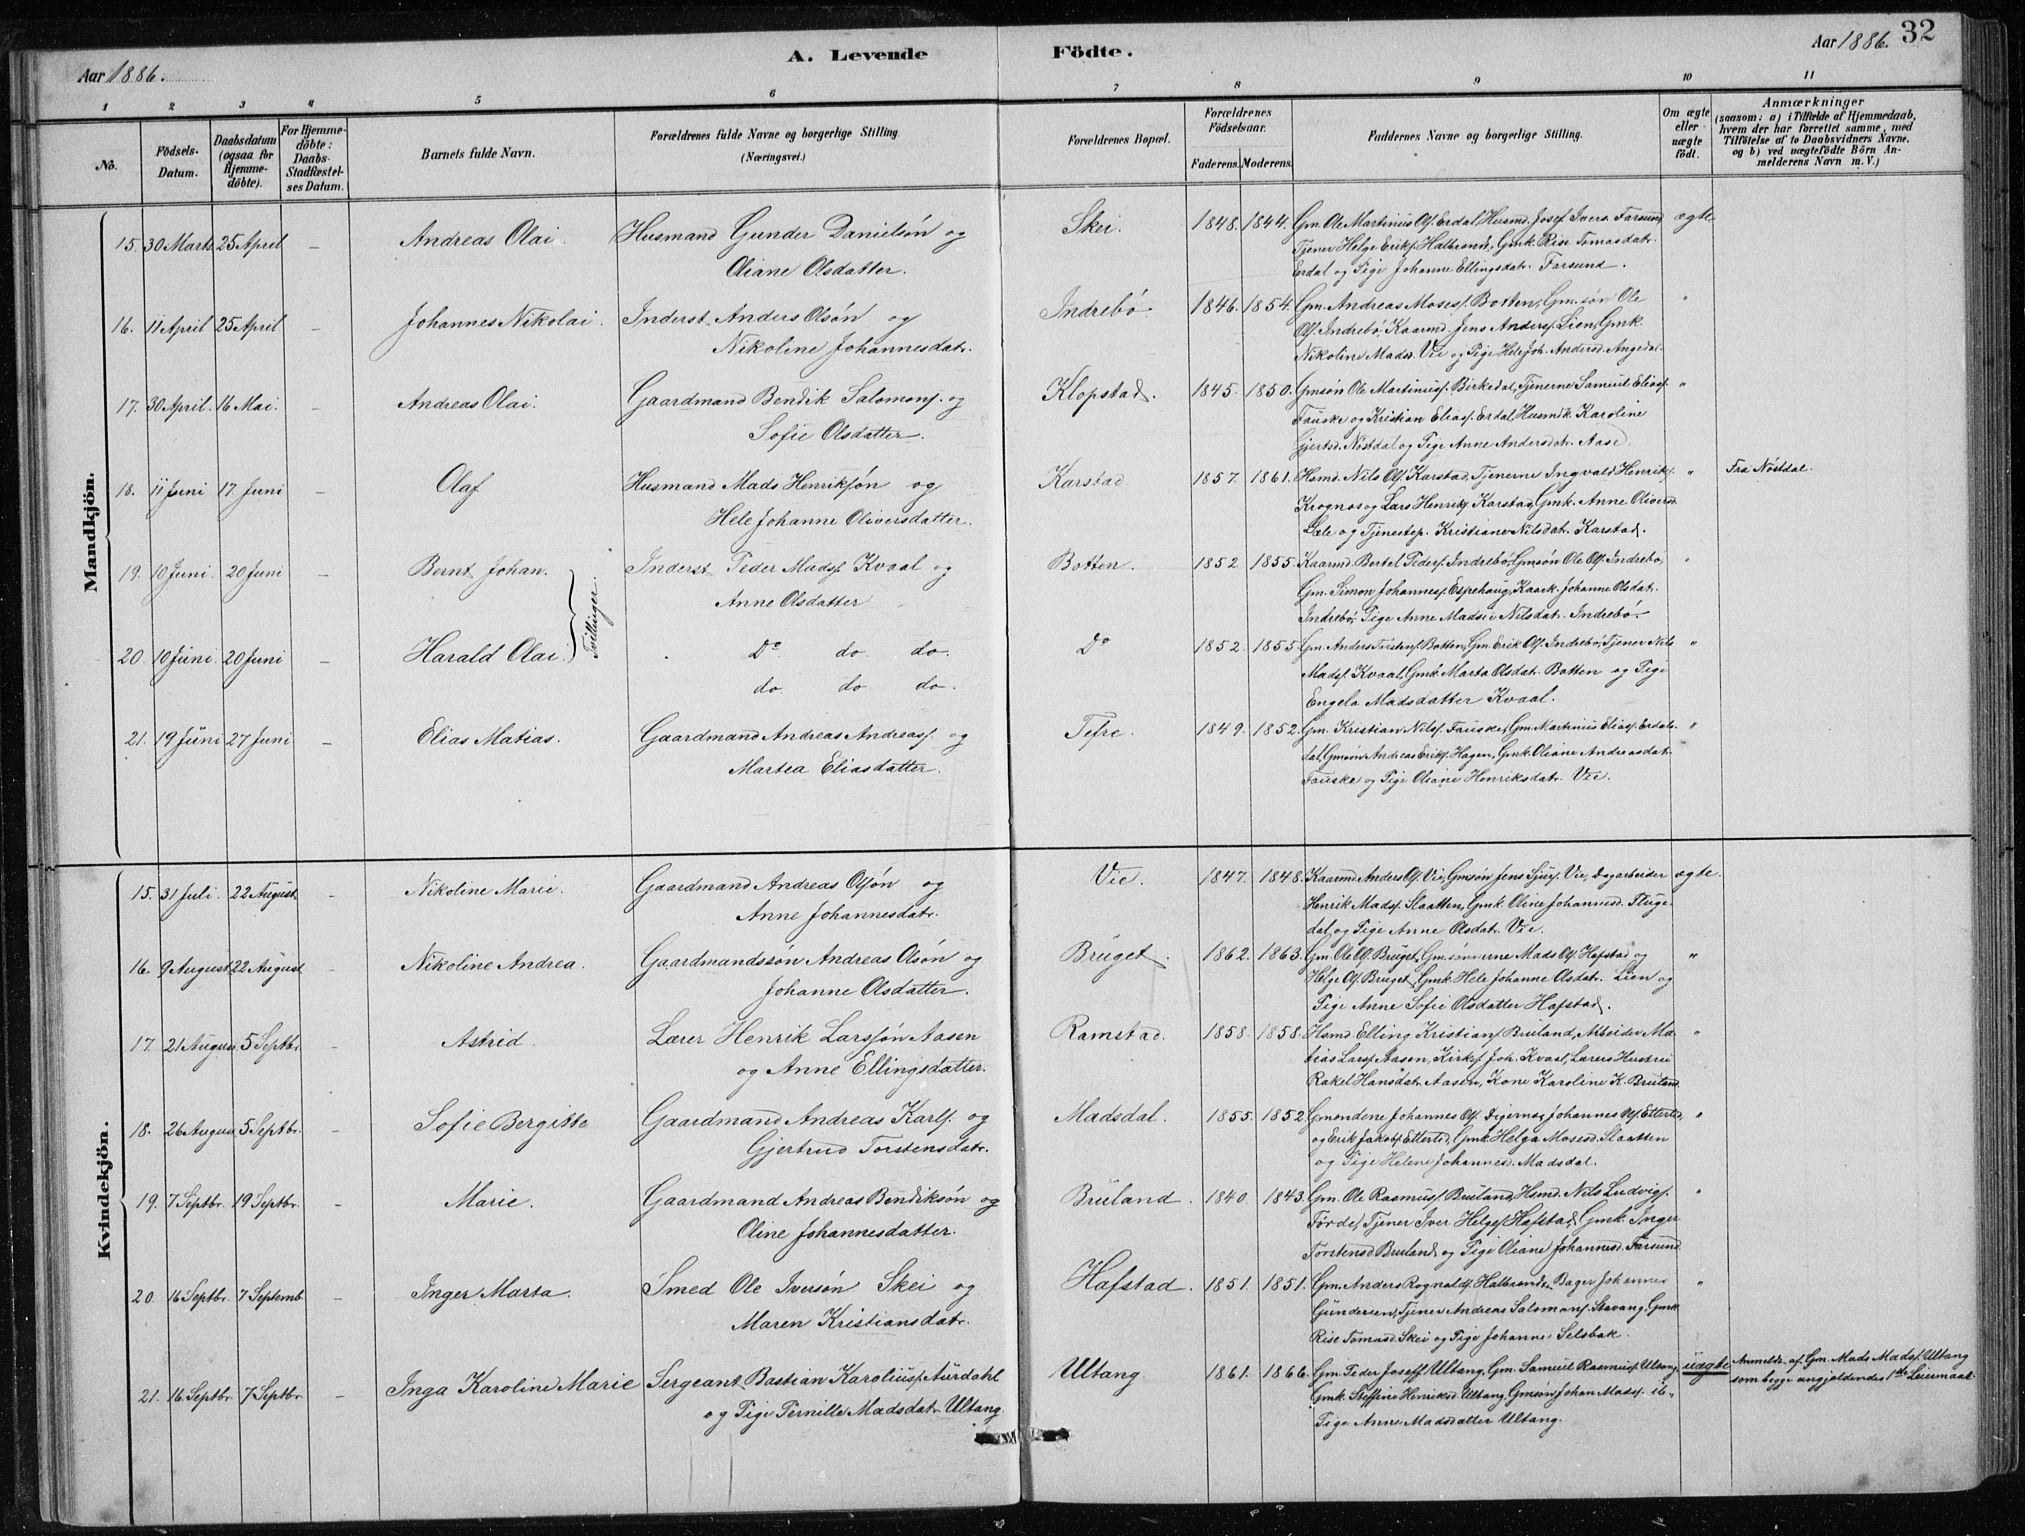 Aar 1886.
A. Levende
Födte.
Aar 1886.
32
1 2 3 4 5 6 7 8 9 10 11
No.
Födsels-
Datum.
Daabsdatum
(ogsaa for
Hjemme-
döbte).
For Hjemme-
döbte:
Daabs-
Stadfæstel-
ses Datum.
Barnets fulde Navn.
Forældrenes fulde Navne og borgerlige Stilling.
(Næringsvei.)
Forældrenes Bopæl.
Forældrenes
Födselsaar.
Faderens. Moderens.
Faddernes Navne og borgerlige Stilling.
Om ægte
eller
uægte
födt.
Anmærkninger
(saasom: a) i Tilfælde af Hjemmedaab,
hvem der har forrettet samme, med
Tilföielse af to Daabsvidners Navne,
og b) ved uægtefödte Börn An-
melderens Navn m. V.)
Mandkjön.
15. 30 Marts 25 April – Andreas Olai. Husmand Gunder Danielsön og Skei. 1848. 1844. Gm. Ole Martinus Ols. Erdal, Husmd. Josef Ivers. Farsund ægte
Tjener Helge Eriks. Halbrend, Gmk. Rise Tomasdatr.
Oliane Olsdatter. Erdal og Pige Johanne Ellingsdatr. Farsund.
16. 11 April 25 April – Johannes Nikolai. Inderst Anders Olsön og Indrebö. 1846. 1854. Gm. Andreas Moses. Botten, Gm.sön Ole "
Ols. Indrebö, Kaarmd. Jens Anders. Lien, Gmk.
Nikoline Johannesdatr. Nikoline Madsd. Vie og Pige Hele Joh. Andersd. Angedal.
17. 30 April. 16 Mai. – Andreas Olai. Gaardmand Bendik Salomons. og Klopstad. 1845. 1850. Gmsön Ole Martinus. Birkedal, Tjenerne Samuel Elias. "
Sofie Olsdatter. Fauske og Kristian Elias. Erdal, Husmk. Karoline
Gjertsd. Nöstdal og Pige Anne Andersdtr. Aase.
18. 11 Juni 17 Juni – Olaf Husmand Mads Henriksön og Karstad 1857. 1861. Hsmd. Nils Ols. Karstad, Tjenerne Ingvald Henriks. " Fra Nöstdal.
Hele Johanne Oliversdatter. Krognos og Lars Henriks. Karstad, Gmk. Anne Oliversd.
og Tjenestep. Kristiane Nilsdat. Karstad.
19. 10 Juni. 20 Juni – Bernt Johan. Inderst Peder Mads. Kvaal og Botten. 1852. 1855. Kaarmd. Bertel Peders. Indrebö, Gmsön Ole Ols. Indrebö, "
Anne Olsdatter Gm. Simon Johannes. Espehaug, Kaark. Johanne Olsdat.
Indrebö, Pige Anne Madsie Nilsdat. Indrebö.
Tvillinger.
20. 10 Juni. 20 Juni – Harald Olai. Do do do. Do 1852. 1855. Gm. Anders Torstens. Botten, Gm. Erik Ols. Indrebö, Tjener Nils "
do do do. Mads. Kvaal, Gmk. Marta Olsdat. Botten og Pige
Engela Madsdatter Kvaal.
21. 19 Juni 27 Juni – Elias Matias. Gaardmand Andreas Andreas. og Tefre. 1849. 1852. Gm. Kristian Nils. Fauske, Gm. Martinus Elias. Erdals- "
dal, Gmsön Andreas Eriks. Hagen, Gmk. Oliane Andreasdat.
Martea Eliasdatter. Fauske og Pige Oliane Henriksdat. Vie.
Kvindekjön.
15. 31 Juli. 22 August. – Nikoline Marie. Gaardmand Andreas Olsön og Vie. 1847. 1848. Kaarmd. Anders Ols. Vie, Gmsön Jens Sjurs. Vie, Dagarbeider ægte.
Henrik Mads. Slaatten, Gmk. Oline Johannesd. Fluge-
Anne Johannesdatr. dal og Pige Anne Olsdat. Vie.
16. 9 August 22 August – Nikoline Andrea. Gaardmandssön Andreas Olsön og Bruget. 1862. 1863. Gm. Ole Ols. Bruget, Gm.sönnerne Mads Ols. Hafstad og "
Johanne Olsdatter. Helge Ols. Bruget, Gmk. Hele Johanne Olsdat. Lien og
Pige Anne Sofie Olsdatter Hafstad.
17. 21 August 5 Septbr. – Astrid. Lærer Henrik Larssön Aasen Ramstad. 1858. 1858. Hsmd. Elling Kristians. Bruland, Arbeider Ma- "
og Anne Ellingsdatter. tias Lars. Aasen, Kirkes. Joh. Kvaal, Lærers Hustru
Rakel Hansdat. Aasen, Kone Karoline K. Bruland.
18. 26 August 5 Septbr. – Sofie Bergitte Gaardmand Andreas Karls. og Madsdal. 1855. 1852. Gmændene Johannes Ols. Digernes, Johannes Ols. Ettertid, "
og Erik Jakobs. Ettertid, Gmk. Helga Mosesd. Slaatten
Gjertrud Torstensdatr. og Pige Helene Johannesd. Madsdal.
19. 7 Septbr. 19 Septbr. – Marie. Gaardmand Andreas Bendiksön og Bruland. 1840. 1843. Gm. Ole Rasmus. Bruland, Hsmd. Nils Ludvigs. "
Oline Johannesdatter. Förde, Tjener Iver Helges. Hafstad, Gmk. Inger
Torstensd. Bruland og Pige Oliane Johannesd. Farsund.
20. 16 Septbr. 7 Septemb. – Inger Marta. Smed Ole Iversön Skei og Hafstad. 1851. 1851. Gm. Anders Rognalds. Halbrend, Bager Johannes "
Gundersen, Tjener Andreas Salomons. Stavang, Gmk.
Maren Kristiansdatr. Rise Tomasd. Skei og Pige Johanne Selsbak.
21. 16 Septbr. 7 Septbr. – Inga Karoline Marie Sergeant Bastian Karolius. Aurdahl Ultang 1861. 1866. Gm. Peder Josefs. Ultang, Gm. Samuel Rasmus. Ultang, uægte Anmeldr. af Gm. Mads Mads. Ultang
og Pige Pernille Madsdat. Ultang. Gmk. Steffine Henriksd. Ultang, Gmsön Johan Mads. ib., som begge angjældendes 1ste Leiermaal.
Pige Anne Madsdatter Ultang.